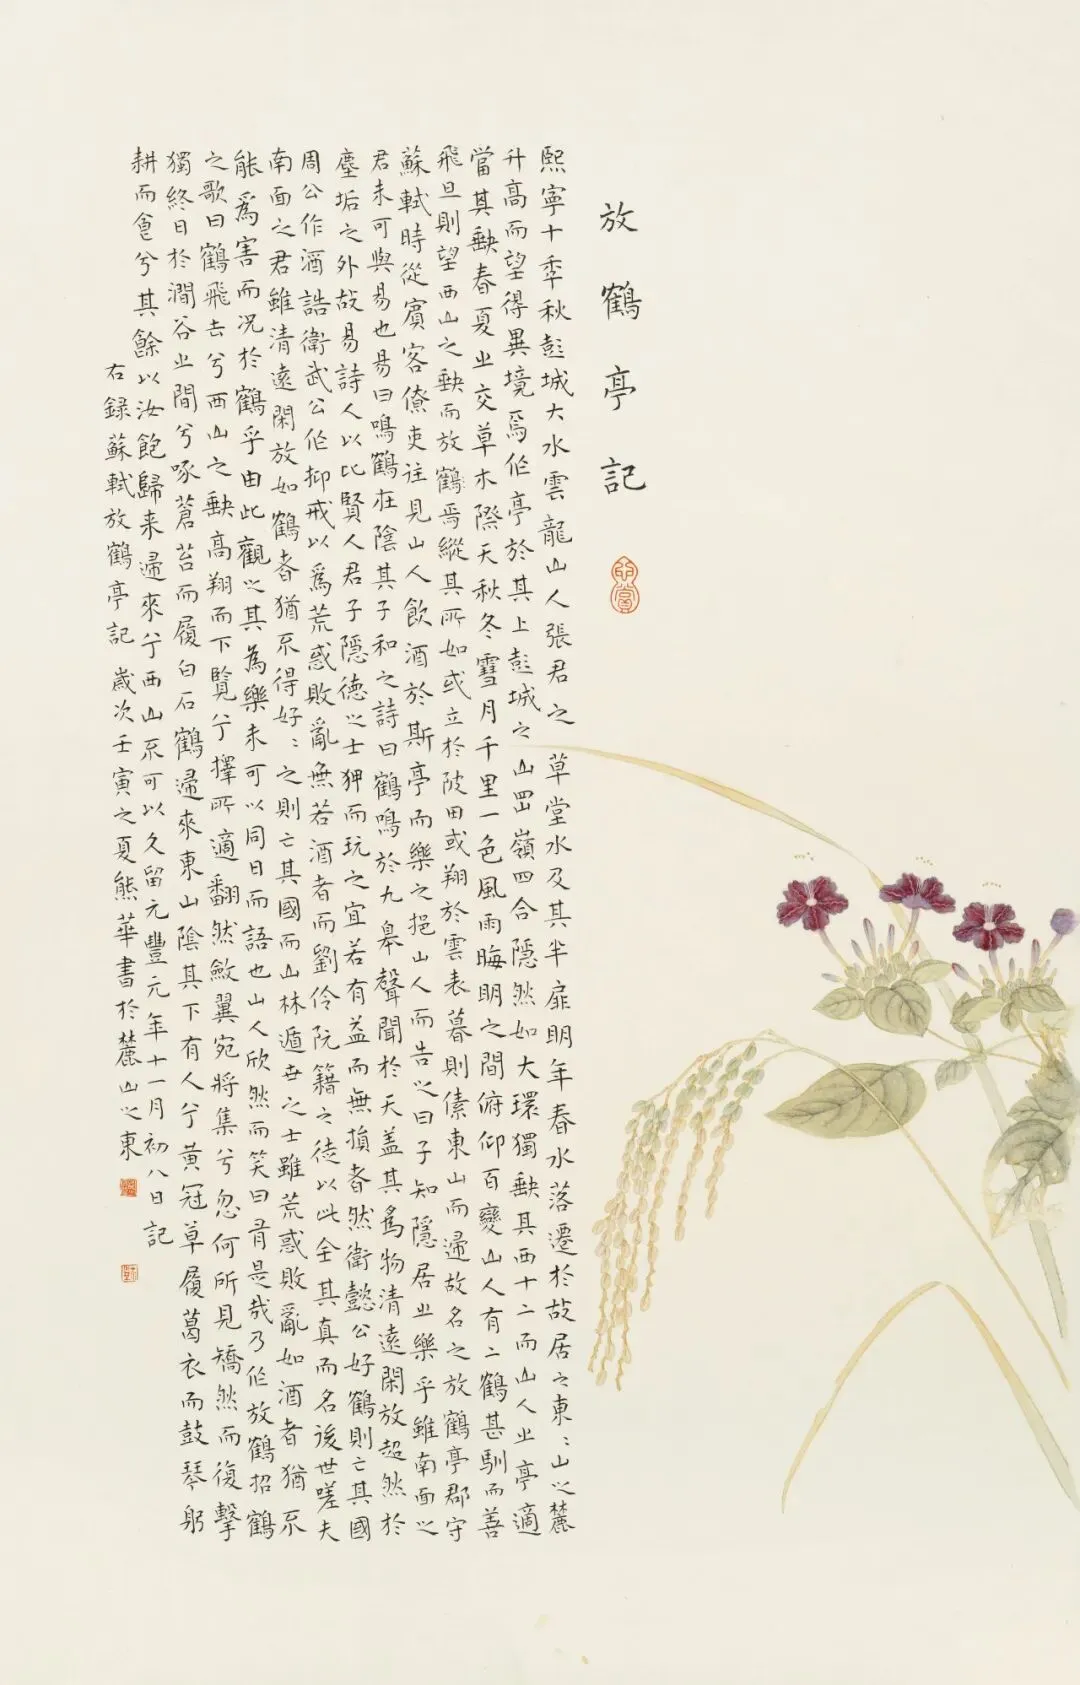 放鶴亭記
熙寧十秊秋彭城大水雲龍山人張君之草堂水及其半扉明年春水落遷於故居之東〻山之麓
升高而望得異境焉作亭於其上彭城之山岡嶺四合隱然如大環獨缺其西十二而山人之亭適
當其缺春夏之交草木際天秋冬雪月千里一色風雨晦明之間俯仰百變山人有二鶴甚馴而善
飛旦則望西山之缺而放鶴焉縱其所如或立於陂田或翔於雲表暮則傃東山而歸故名之放鶴亭郡守
蘇軾時從賓客僚吏往見山人飲酒於斯亭而樂之挹山人而告之曰子知隱居之樂乎雖南面之
君未可與易也易曰鳴鶴在陰其子和之詩曰鶴鳴於九皋聲聞於天蓋其為物清遠閑放超然於
塵垢之外故易詩人以比賢人君子隱德之士狎而玩之宜若有益而無損者然衛懿公好鶴則亡其國
周公作酒誥衛武公作抑戒以為荒惑敗亂無若酒者而劉伶阮籍之徒以此全其真而名後世嗟夫
南面之君雖清遠閑放如鶴者猶不得好〻之則亡其國而山林遁世之士雖荒惑敗亂如酒者猶不
能為害而況於鶴乎由此觀之其為樂未可以同日而語也山人欣然而笑曰有是哉乃作放鶴招鶴
之歌曰鶴飛去兮西山之缺高翔而下覽兮擇所適翻然斂翼宛將集兮忽何所見矯然而復擊
獨終日於澗谷之間兮啄蒼苔而履白石鶴歸來東山陰其下有人兮黃冠草履葛衣而鼓琴躬
耕而食兮其餘以汝飽歸来歸來兮西山不可以久留元豐元年十一月初八日記
右録蘇軾放鶴亭記 歲次壬寅之夏熊華書於麓山之東